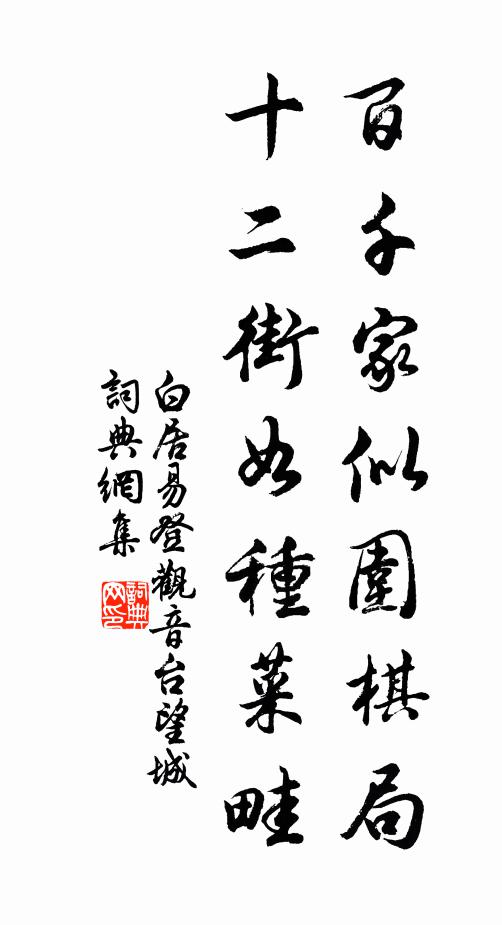 百千家似圍棋局
十二街如種菜畦
白居易登觀音台望城
詞典網集
詞典网印